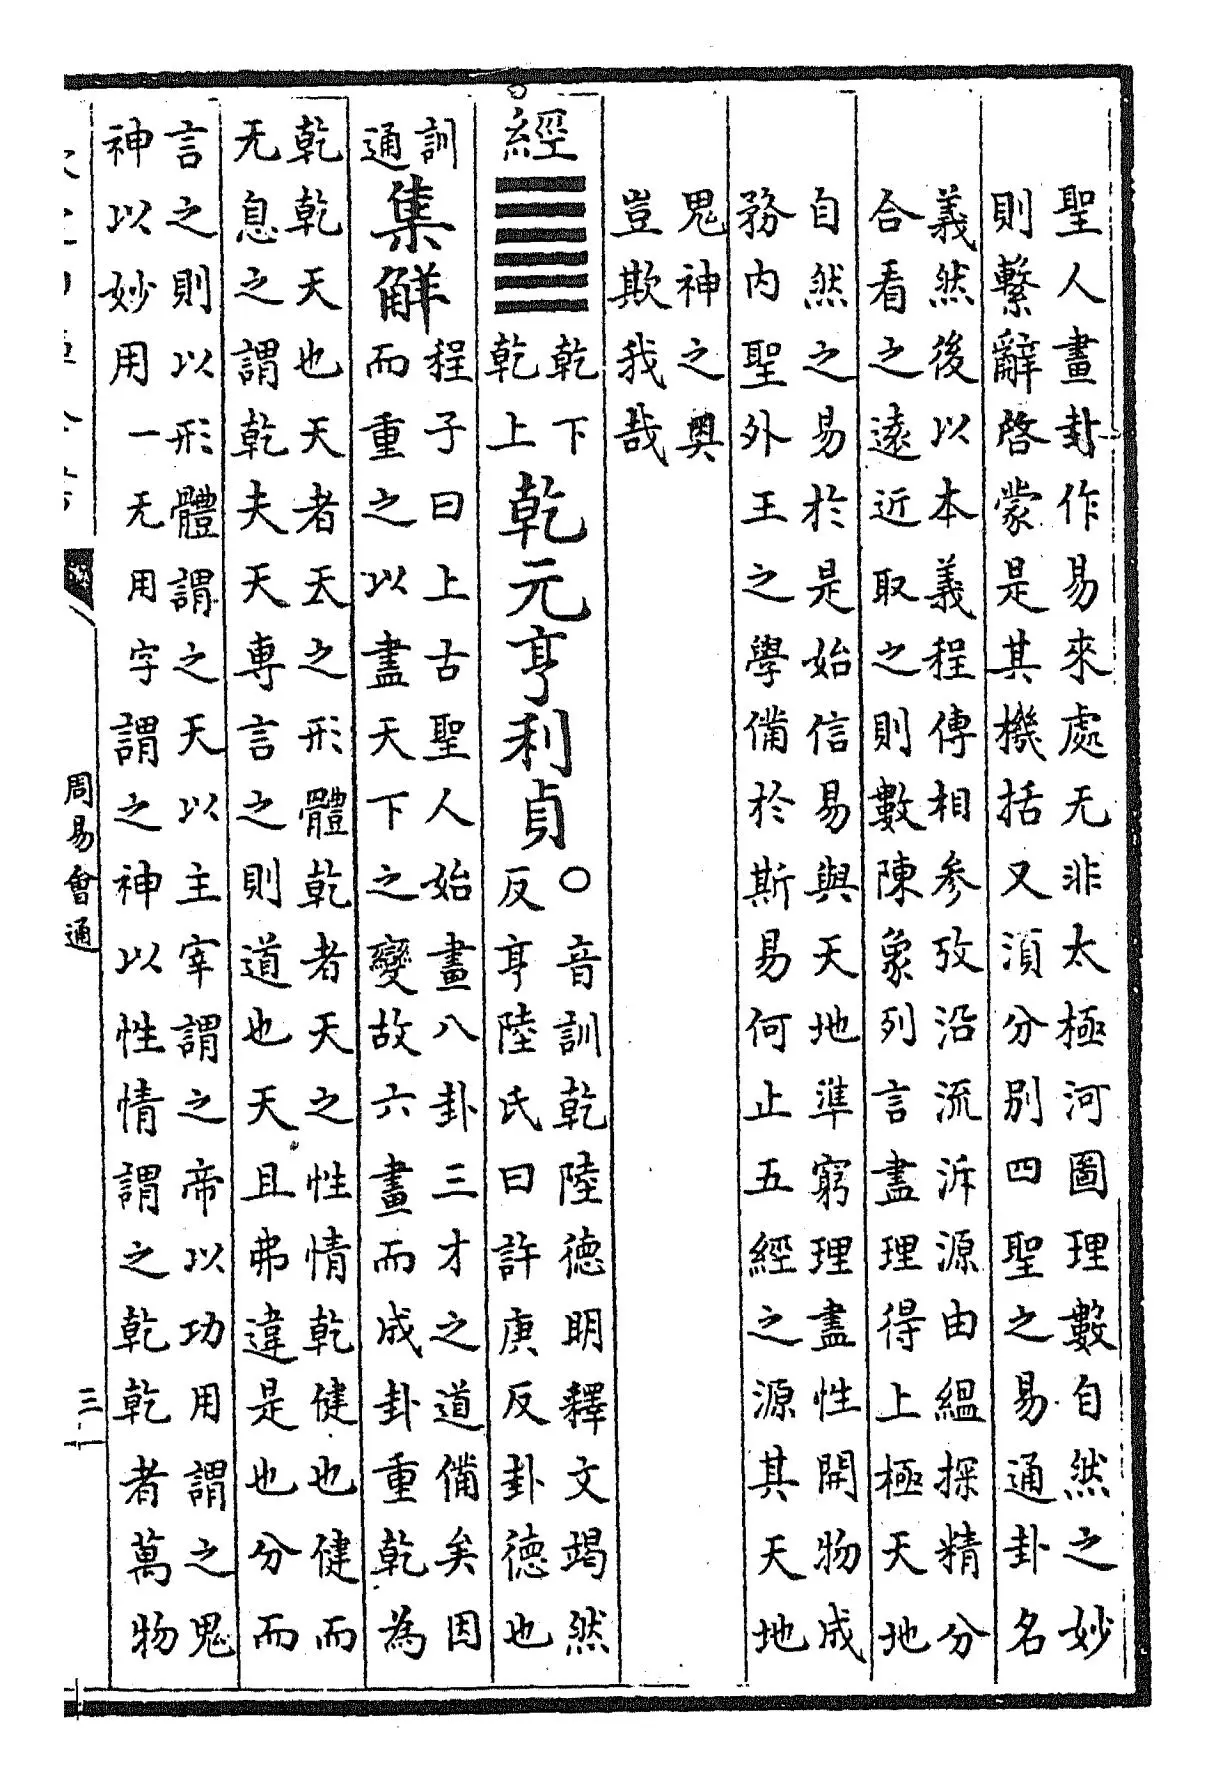 聖人畫卦作易來處无非太極河圖理數自然之妙
則繫辭啓蒙是其機括又湏分别四聖之易通卦名
義然後以本義程傳相參攷沿流泝源由緼探精分
合看之遠近取之則數陳象列言盡理得上極天地
自然之易於是始信易與天地準窮理盡性開物成
務内聖外王之學備於斯易何止五經之源其天地
鬼神之奥
豈欺我哉
經
乾下
乾上
乾元亨利貞
○音訓乾陸德明釋文竭然
反亨陸氏曰許庚反卦德也
訓
通
集解
程子曰上古聖人始畫八卦三才之道備矣因
而重之以盡天下之變故六畫而成卦重乾為
乾乾天也天者天之形體乾者天之性情乾健也健而
无息之謂乾夫天専言之則道也天且弗違是也分而
言之則以形體謂之天以主宰謂之帝以功用謂之鬼
神以妙用一无用字謂之神以性情謂之乾乾者萬物
周易會通
三